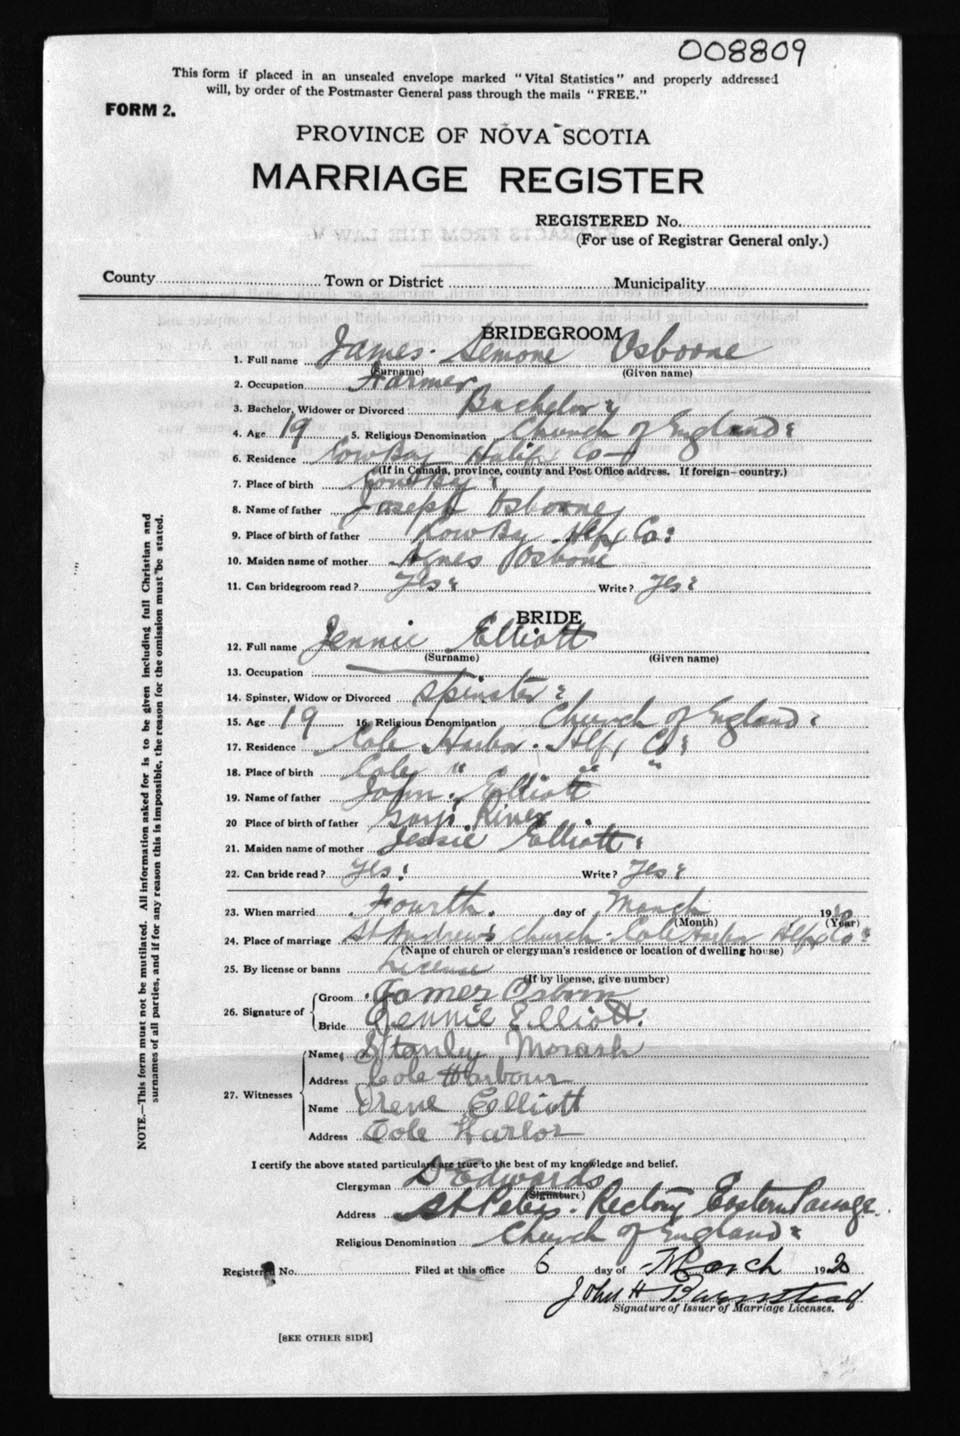 008809
This form if placed in an unsealed envelope marked "Vital Statistics" and properly addressed
will, by order of the Postmaster General pass through the mails "FREE."
FORM 2.
PROVINCE OF NOVA SCOTIA
MARRIAGE REGISTER
REGISTERED No.
(For use of Registrar General only.)
County Town or District Municipality
BRIDEGROOM
1. Full name James Semone Osborne
(Surname) (Given name)
2. Occupation Farmer
3. Bachelor, Widower or Divorced Bachelor
4. Age 19 5. Religious Denomination Church of England
6. Residence Cow Bay Halifx Co
(If in Canada, province, county and Post Office address. If foreign—country.)
7. Place of birth Cow Bay
8. Name of father Joseph Osborne
9. Place of birth of father Cow By Hlfx Co:
10. Maiden name of mother Agnes Osbone
11. Can bridegroom read? Yes: Write? Yes:
BRIDE
12. Full name Jennie Elliott
(Surname) (Given name)
13. Occupation
14. Spinster, Widow or Divorced Spinster:
15. Age 19 16. Religious Denomination Church of England:
17. Residence Cole Harbor. Hlfx Co:
18. Place of birth Cole " " "
19. Name of father John. Elliott
20 Place of birth of father River
21. Maiden name of mother Jessie Elliott:
22. Can bride read? Yes: Write? Yes:
23. When married Fourth. day of March 1920
(Month) (Year)
24. Place of marriage St Andrew's Church. Cole Harbor Hlfx Co:
(Name of church or clergyman's residence or location of dwelling house)
25. By license or banns License
(If by license, give number)
26. Signature of Groom James Osborn
Bride Jennie Elliott.
27. Witnesses Name Stanley Morash
Address Cole Harbour
Name Irene Elliott
Address Cole Harbor
I certify the above stated particulars are true to the best of my knowledge and belief.
Clergyman D Edwards
(Signature)
Address St Peters. Rectory Eastern Passage.
Religious Denomination Church of England:
Registered No. Filed at this office 6 day of March 1920
John H Barnstead
Signature of Issuer of Marriage Licenses.
[SEE OTHER SIDE]
NOTE.—This form must not be mutilated. All information asked for is to be given including full Christian and
surnames of all parties, and if for any reason this is impossible, the reason for the omission must be stated.